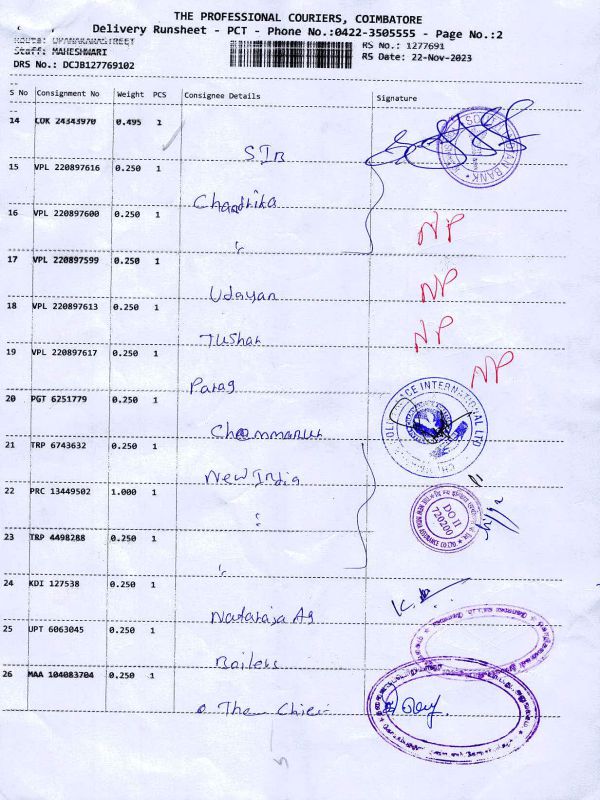 THE PROFESSIONAL COURIERS, COIMBATORE
Delivery Runsheet - PCT - Phone No.:0422-3505555 - Page No.:2
Route: UPANAKARASTREET
Staff: MAHESHWARI
RS No.: 1277691
RS Date: 22-Nov-2023
DRS No.: DCJB127769102
S No Consignment No Weight PCS Consignee Details Signature
14 COK 24343970 0.495 1
SIB
15 VPL 220897616 0.250 1
Chandrika
16 VPL 220897600 0.250 1
NP
17 VPL 220897599 0.250 1
Udayan NP
18 VPL 220897613 0.250 1
Tushar NP
19 VPL 220897617 0.250 1
Parag NP
20 PGT 6251779 0.250 1
21 TRP 6743632 0.250 1
New India
22 PRC 13449502 1.000 1
DO II
720200
23 TRP 4498288 0.250 1
24 KDI 127538 0.250 1
Nataraja Ag
25 UPT 6063045 0.250 1
26 MAA 104083704 0.250 1
The Chief